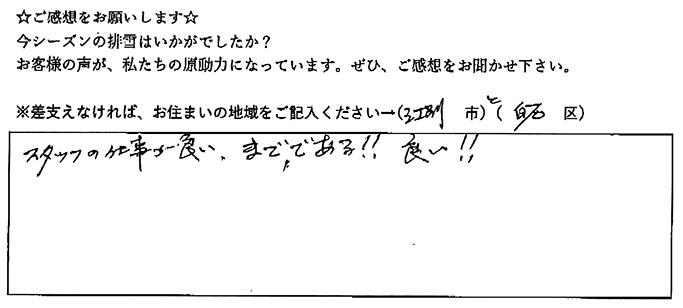 ☆ご感想をお願いします☆
今シーズンの排雪はいかがでしたか？
お客様の声が、私たちの原動力になっています。ぜひ、ご感想をお聞かせ下さい。
※差支えなければ、お住まいの地域をご記入ください→(江別 市)と(白石 区)
スタッフの仕事が良い、まで、である!! 良い!!